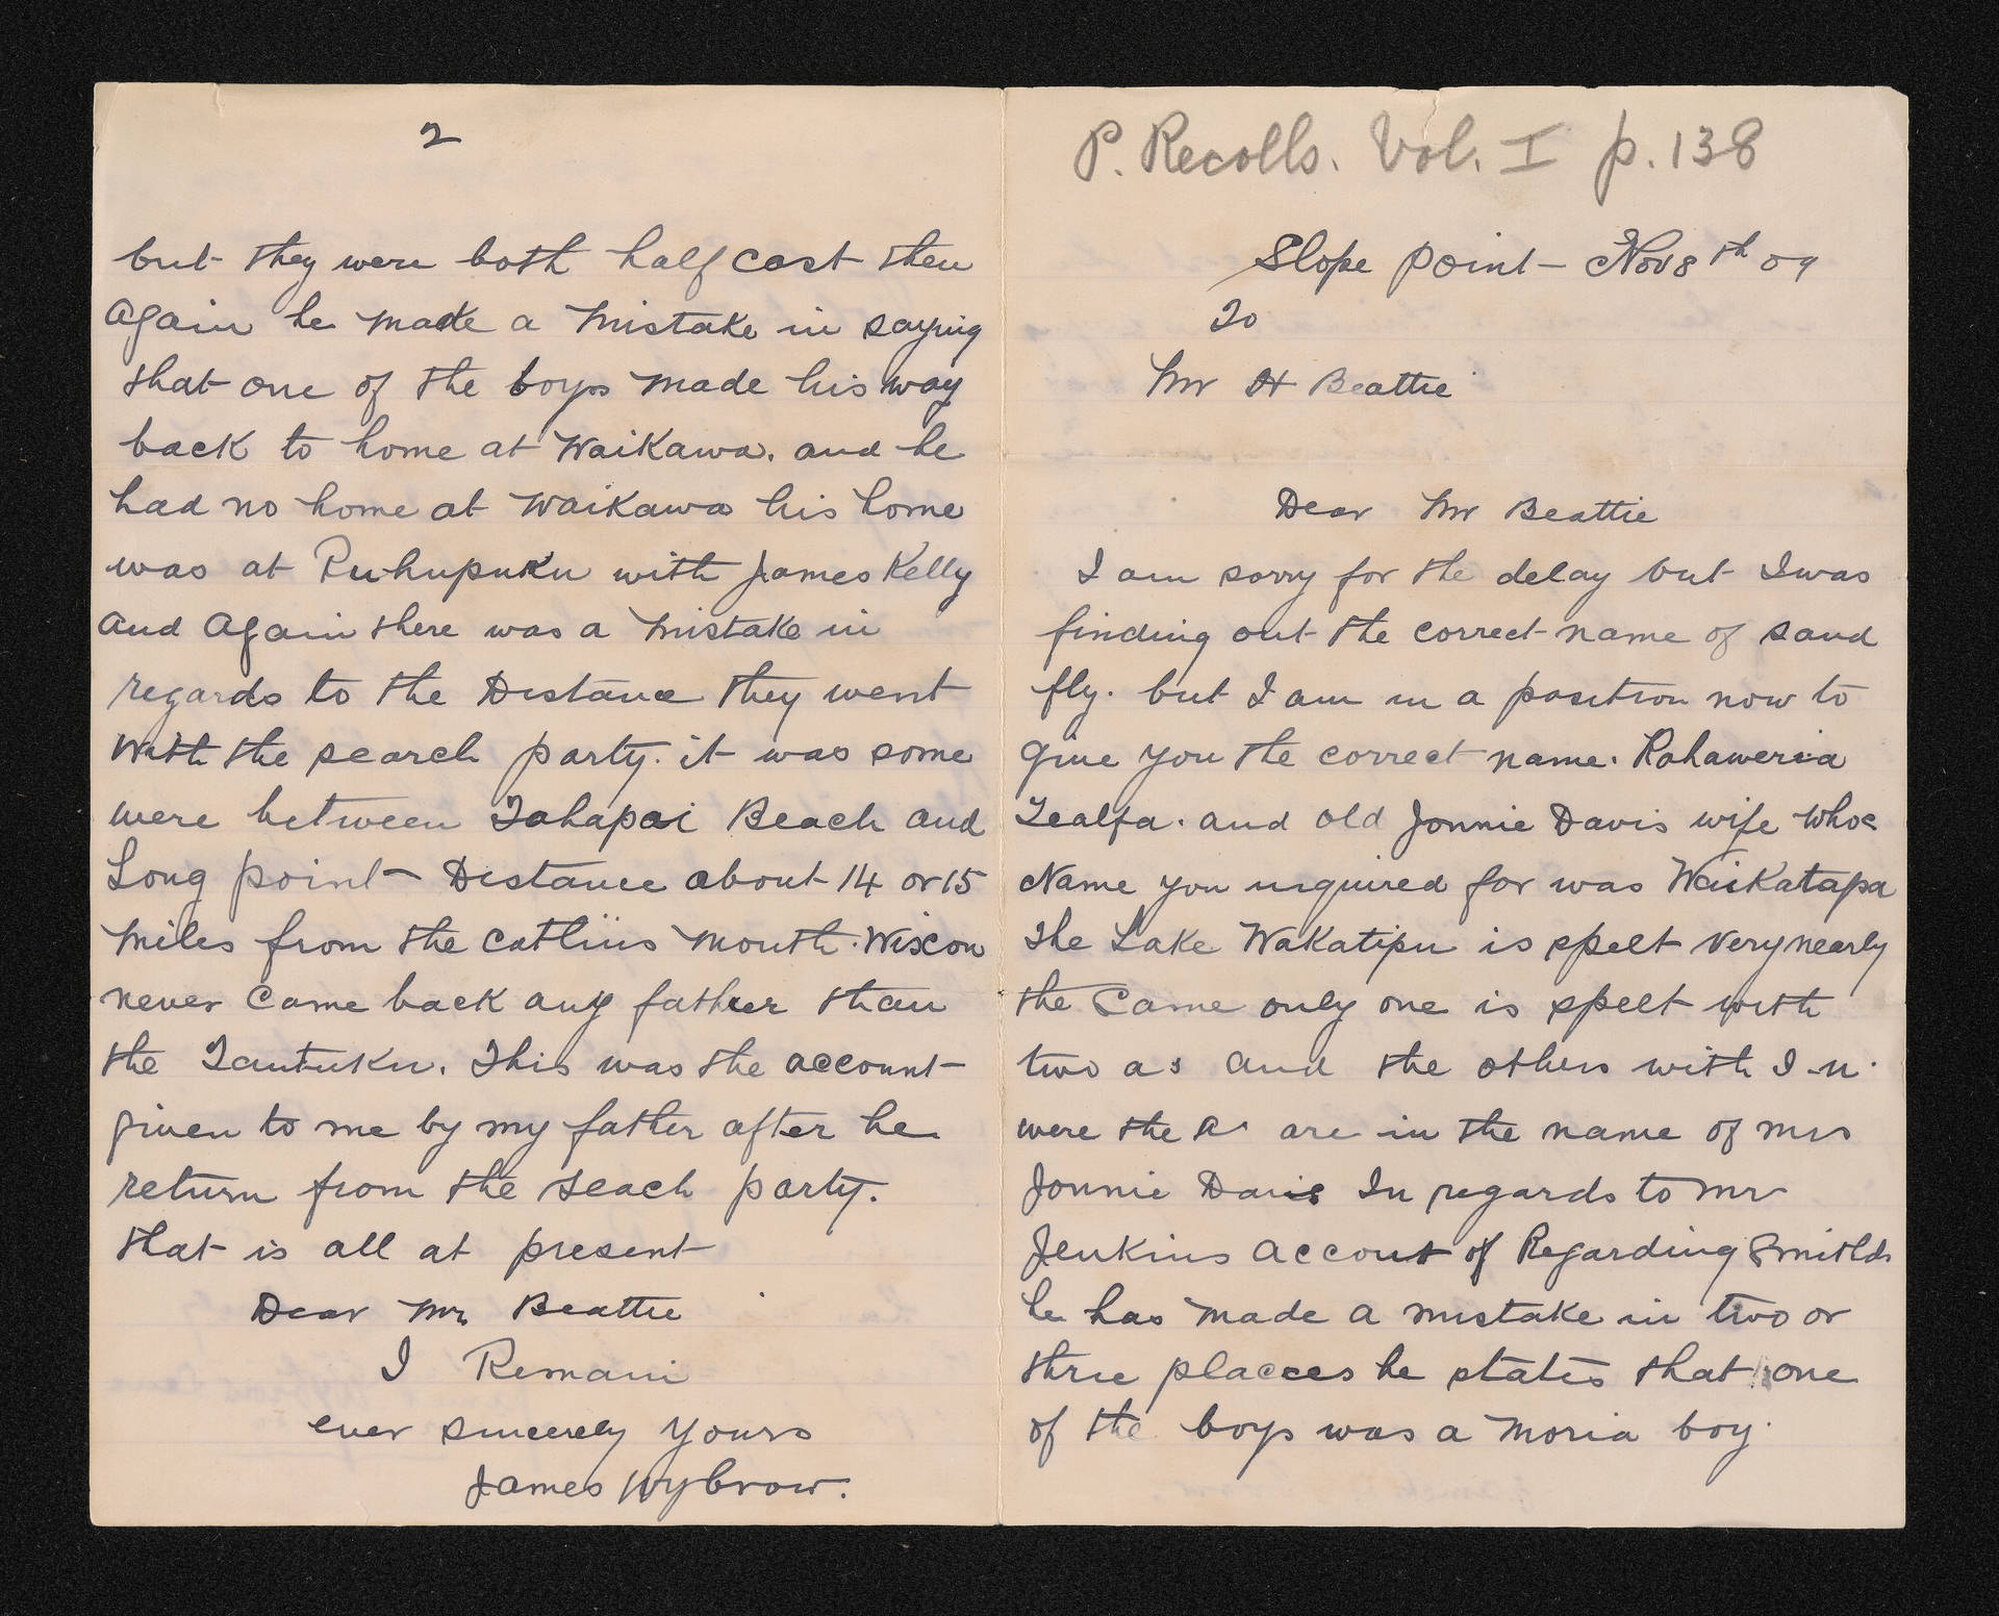 P. Recolls. Vol. I p. 138
Slope Point Nov 8th 09
To
Mr H Beattie
Dear Mr Beattie
I am sorry for the delay but I was
finding out the correct name of sand
fly. but I am in a position now to
give you the correct name. Rahaweria
Tealfa. and old Jonnie Davis wife whos
Name you inquired for was Waikatapa
The Lake Wakatipu is spelt very nearly
the Came only one is spelt with
two as and the others with I-u.
were the a are in the name of mrs
Jonnie Davis In regards to mr
Jenkins account of Regarding Smiths
he has made a mistake in two or
three placces he states that one
of the boys was a moria boy.
2
but they were both half cast then
Again he made a mistake in saying
that one of the boys made his way
back to home at Waikawa. and he
had no home at Waikawa his home
was at Puhupuku with James Kelly
and Again there was a mistake in
regards to the Distance they went
With the search party. it was some
were between Tahapai Beach and
Long point Distance about 14 or 15
miles from the catlins mouth. Wixon
never came back any father than
the Tautuku. This was the account
given to me by my father after he
return from the seach party.
that is all at present
Dear Mr Beattie
I Remain
ever sincerely yours
James Wybrow.